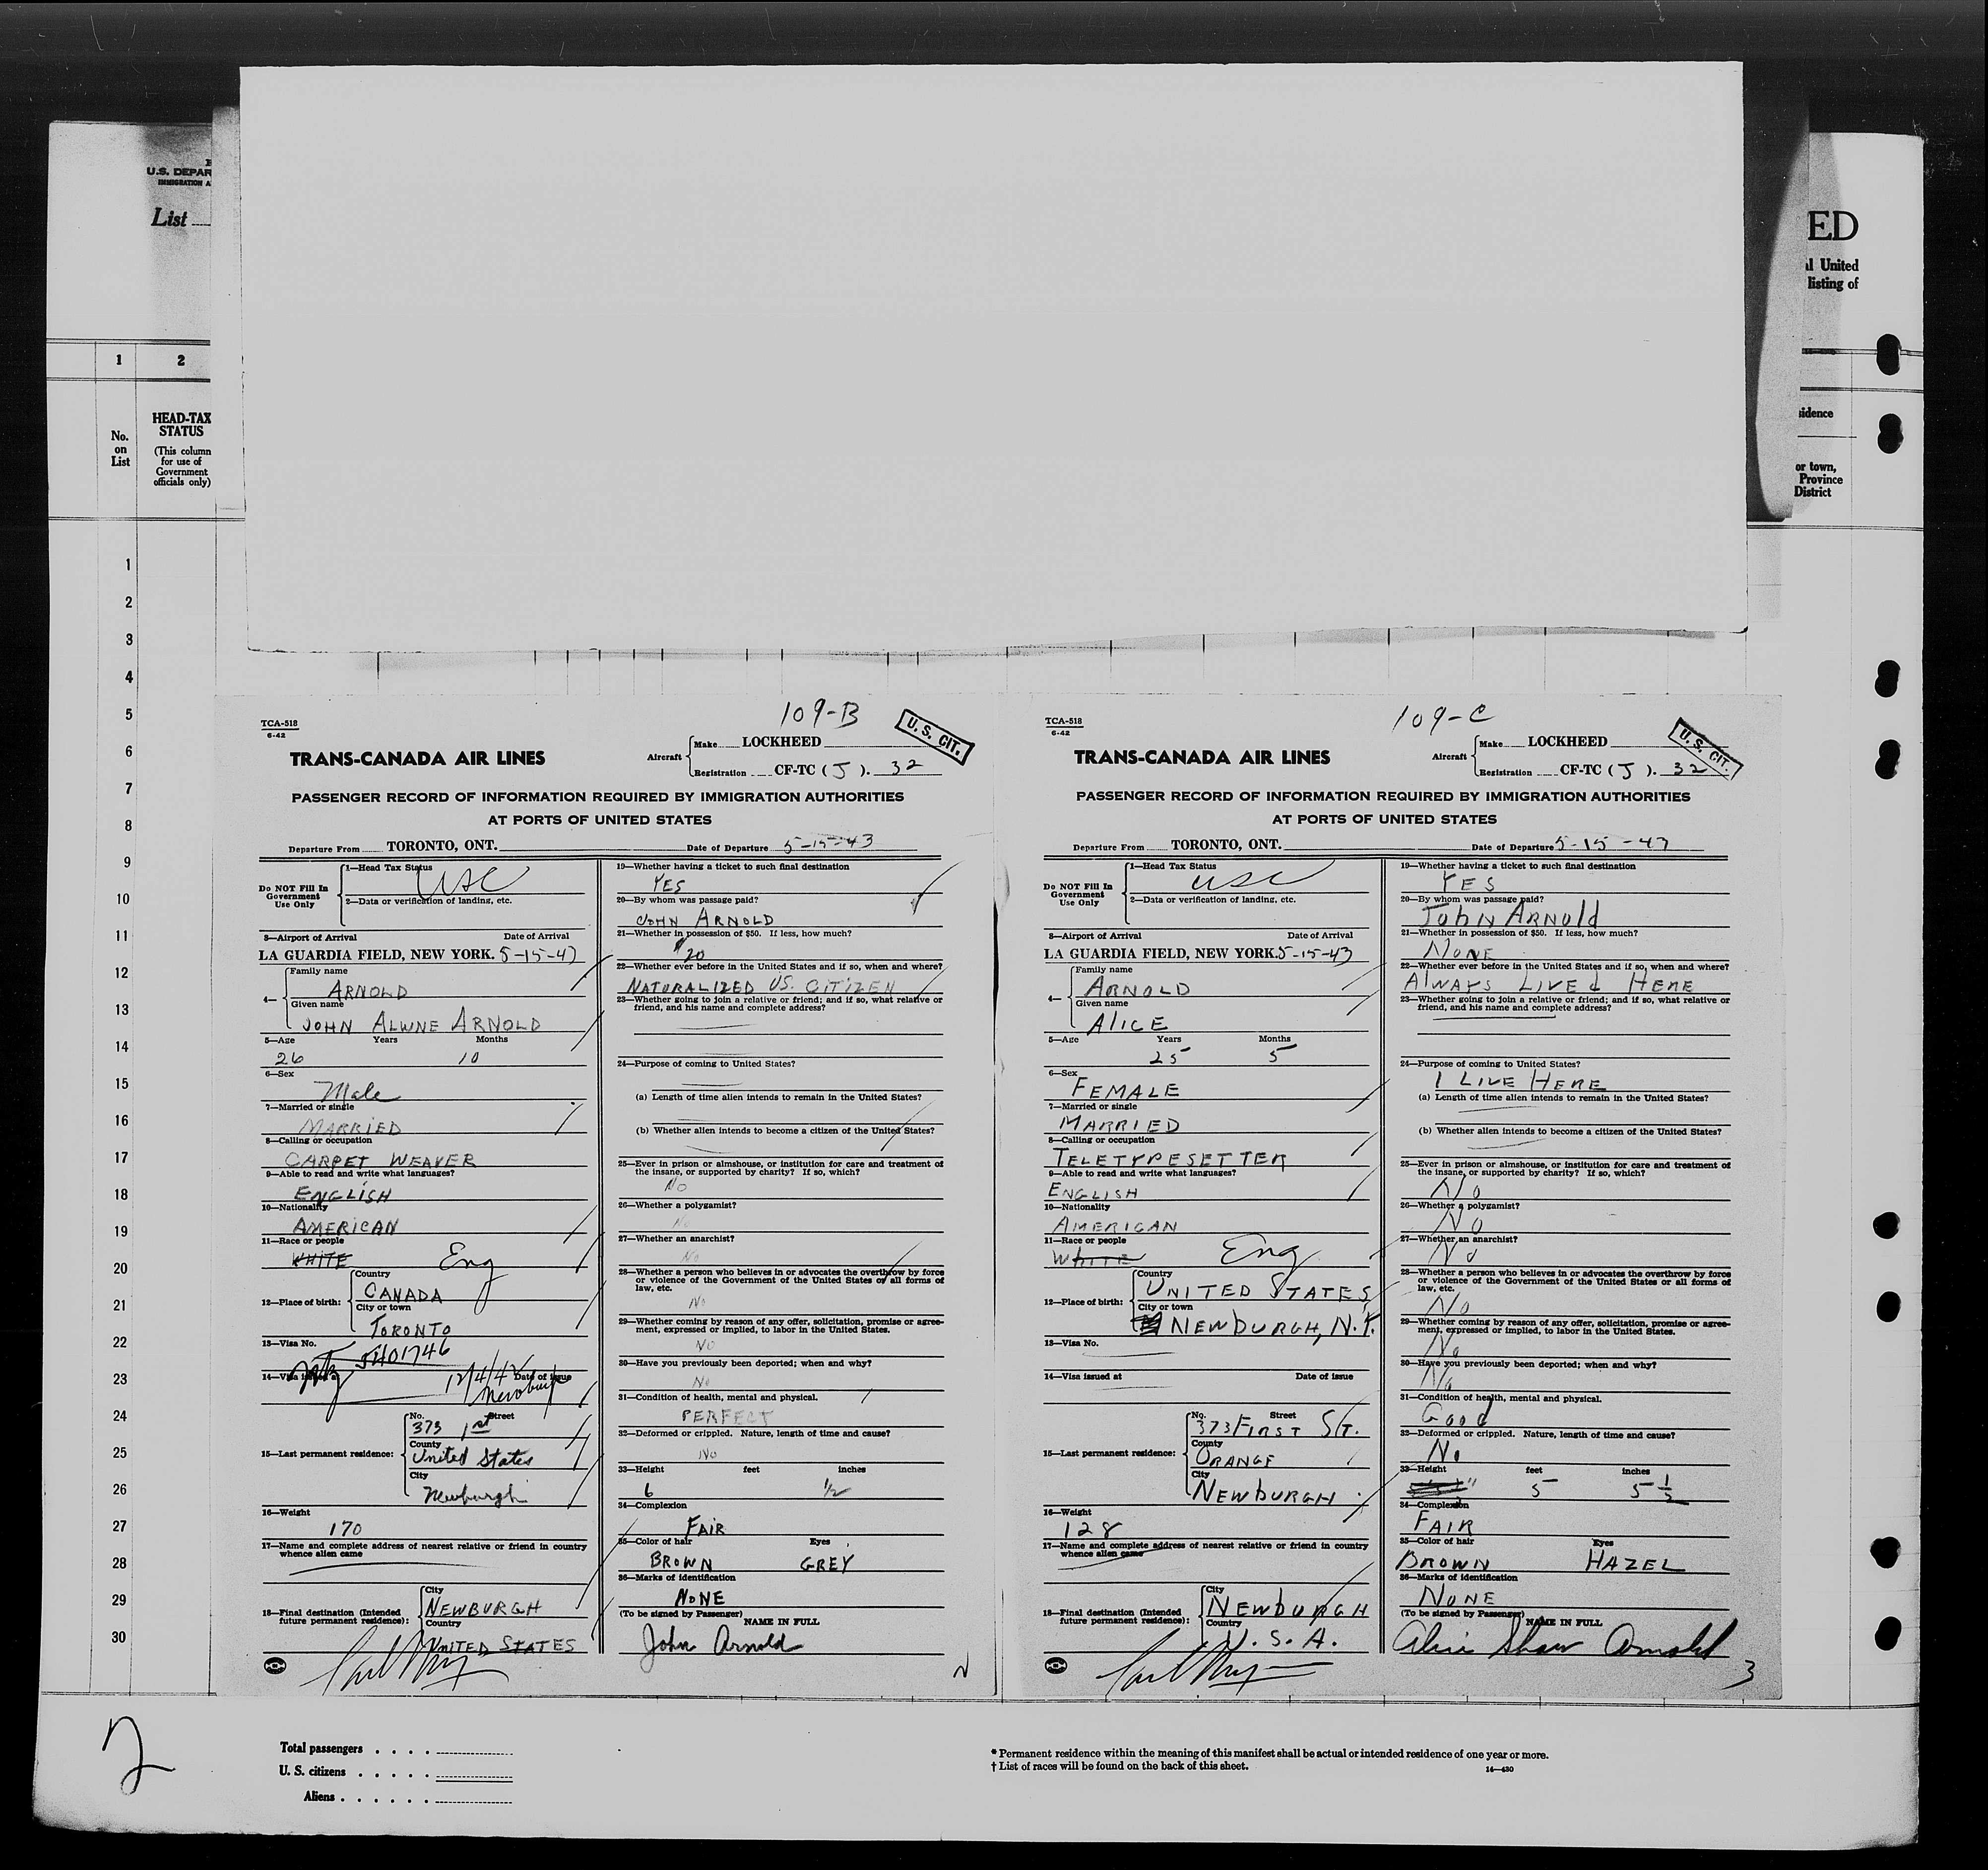 U.S. DEPAR
IMMIGRATION A
List
ED
al United
listing of
1 2
HEAD-TAX
STATUS
No.
on
List
(This column
for use of
Government
officials only)
sidence
or town,
Province
District
1
2
3
4
5
6
7
8
9
10
11
12
13
14
15
16
17
18
19
20
21
22
23
24
25
26
27
28
29
30
109-B
TCA-518
6-42
U. S. CIT.
TRANS-CANADA AIR LINES
Aircraft
Make LOCKHEED
Registration CF-TC (J). 32
PASSENGER RECORD OF INFORMATION REQUIRED BY IMMIGRATION AUTHORITIES
AT PORTS OF UNITED STATES
Departure From TORONTO, ONT. Date of Departure 5-15-43
Do NOT Fill In
Government
Use Only
1—Head Tax Status
USC
2—Data or verification of landing, etc.
3—Airport of Arrival Date of Arrival
LA GUARDIA FIELD, NEW YORK. 5-15-43
4—
Family name
ARNOLD
Given name
JOHN ALWNE ARNOLD
5—Age Years Months
26 10
6—Sex
Male
7—Married or single
MARRIED
8—Calling or occupation
CARPET WEAVER
9—Able to read and write what languages?
ENGLISH
10—Nationality
AMERICAN
11—Race or people
WHITE Eng
12—Place of birth:
Country
CANADA
City or town
TORONTO
13—Visa No.
5401746
14—Visa issued at Date of issue
12/4/42
Newburgh
15—Last permanent residence:
No. Street
373 1st
County
United States
City
Newburgh
16—Weight
170
17—Name and complete address of nearest relative or friend in country
whence alien came
18—Final destination (Intended
future permanent residence):
City
NEWBURGH
Country
UNITED STATES
19—Whether having a ticket to such final destination
YES
20—By whom was passage paid?
JOHN ARNOLD
21—Whether in possession of $50. If less, how much?
$20
22—Whether ever before in the United States and if so, when and where?
NATURALIZED US. CITIZEN
23—Whether going to join a relative or friend; and if so, what relative or
friend, and his name and complete address?
24—Purpose of coming to United States?
(a) Length of time alien intends to remain in the United States?
(b) Whether alien intends to become a citizen of the United States?
25—Ever in prison or almshouse, or institution for care and treatment of
the insane, or supported by charity? If so, which?
No
26—Whether a polygamist?
No
27—Whether an anarchist?
No
28—Whether a person who believes in or advocates the overthrow by force
or violence of the Government of the United States or all forms of
law, etc.
No
29—Whether coming by reason of any offer, solicitation, promise or agree-
ment, expressed or implied, to labor in the United States.
No
30—Have you previously been deported; when and why?
No
31—Condition of health, mental and physical.
PERFECT
32—Deformed or crippled. Nature, length of time and cause?
No
33—Height feet inches
6 1/2
34—Complexion
FAIR
35—Color of hair Eyes
BROWN GREY
36—Marks of identification
NONE
(To be signed by Passenger) NAME IN FULL
John Arnold
2
109-C
TCA-518
6-42
U. S. CIT.
TRANS-CANADA AIR LINES
Aircraft
Make LOCKHEED
Registration CF-TC (J). 32
PASSENGER RECORD OF INFORMATION REQUIRED BY IMMIGRATION AUTHORITIES
AT PORTS OF UNITED STATES
Departure From TORONTO, ONT. Date of Departure 5-15-43
Do NOT Fill In
Government
Use Only
1—Head Tax Status
USC
2—Data or verification of landing, etc.
3—Airport of Arrival Date of Arrival
LA GUARDIA FIELD, NEW YORK. 5-15-43
4—
Family name
ARNOLD
Given name
ALICE
5—Age Years Months
25 5
6—Sex
FEMALE
7—Married or single
MARRIED
8—Calling or occupation
TELETYPESETTER
9—Able to read and write what languages?
ENGLISH
10—Nationality
AMERICAN
11—Race or people
White Eng
12—Place of birth:
Country
UNITED STATES
City or town
NEWBURGH, N.Y.
13—Visa No.
14—Visa issued at Date of issue
15—Last permanent residence:
No. Street
373 FIRST ST.
County
ORANGE
City
NEWBURGH
16—Weight
128
17—Name and complete address of nearest relative or friend in country
whence alien came
18—Final destination (Intended
future permanent residence):
City
NEWBURGH
Country
U.S.A.
19—Whether having a ticket to such final destination
YES
20—By whom was passage paid?
John Arnold
21—Whether in possession of $50. If less, how much?
NONE
22—Whether ever before in the United States and if so, when and where?
ALWAYS LIVEd HERE
23—Whether going to join a relative or friend; and if so, what relative or
friend, and his name and complete address?
24—Purpose of coming to United States?
I LIVE HERE
(a) Length of time alien intends to remain in the United States?
(b) Whether alien intends to become a citizen of the United States?
25—Ever in prison or almshouse, or institution for care and treatment of
the insane, or supported by charity? If so, which?
No
26—Whether a polygamist?
No
27—Whether an anarchist?
No
28—Whether a person who believes in or advocates the overthrow by force
or violence of the Government of the United States or all forms of
law, etc.
No
29—Whether coming by reason of any offer, solicitation, promise or agree-
ment, expressed or implied, to labor in the United States.
No
30—Have you previously been deported; when and why?
No
31—Condition of health, mental and physical.
Good
32—Deformed or crippled. Nature, length of time and cause?
No
33—Height feet inches
5 5 1/2
34—Complexion
FAIR
35—Color of hair Eyes
BROWN HAZEL
36—Marks of identification
NONE
(To be signed by Passenger) NAME IN FULL
Alice Shaw Arnold
3
2
Total passengers . . . .
U. S. citizens . . . . .
Aliens . . . . . .
* Permanent residence within the meaning of this manifest shall be actual or intended residence of one year or more.
† List of races will be found on the back of this sheet.
14—430